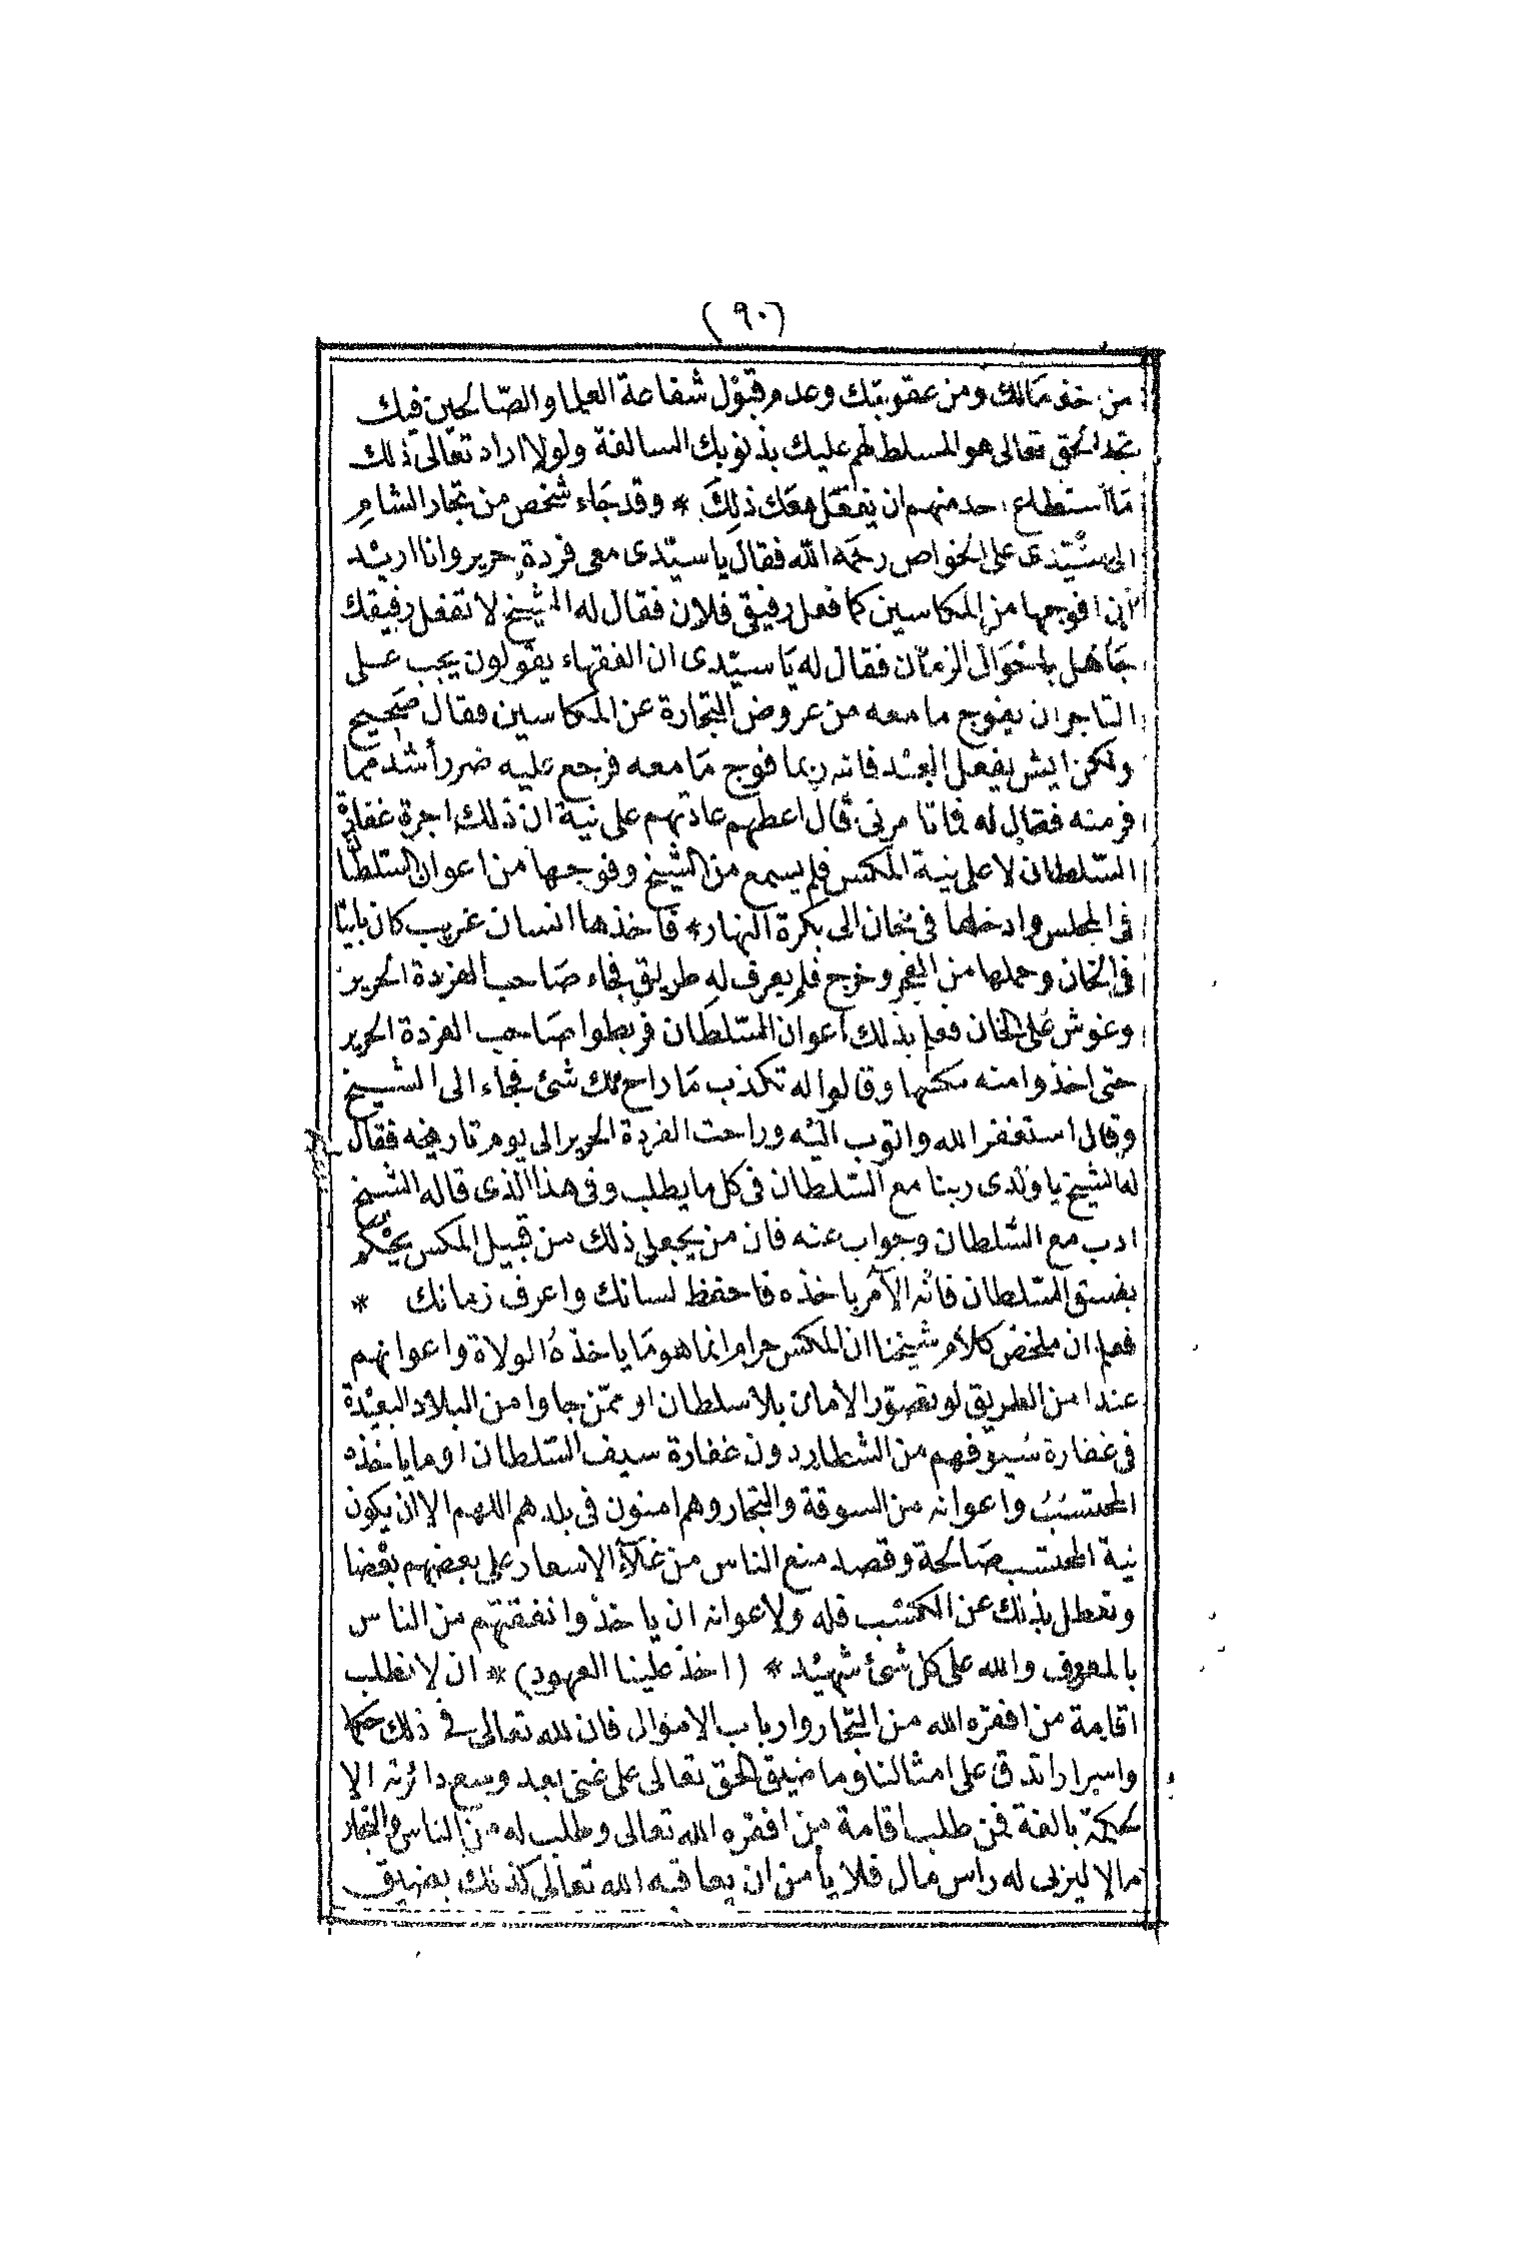 (٩٠)
من خذ مالك ومن عقوبتك وعدم قبول شفاعة العلما والصالحين فيك
تجد الحق تعالى هو المسلط لهم عليك بذنوبك السالفة ولولا اراد تعالى ذلك
ما استطاع احد منهم ان يفعل معك ذلك * وقد جاء شخص من تجار الشام
الى سيدى على الخواص رحمه الله فقال يا سيدى معى فردة حرير وانا اريد
ان افوجها من المكاسين كما فعل رفيقى فلان فقال له الشيخ لا تفعل رفيقك
جاهل باحوال الزمان فقال له يا سيدى ان الفقهاء يقولون يجب على
التاجر ان يفوج ما معه من عروض التجارة عن المكاسين فقال صحيح
ولكن ايش يفعل العبد فانه ربما فوج ما معه فرجع عليه ضررأشد مما
فر منه فقال له فما تامرنى قال اعطهم عادتهم على نية ان ذلك اجرة غفارة
السلطان لا على نية المكس فلم يسمع من الشيخ وفوجها من اعوان السلطان
فى المجلس وادخلها فى خان الى بكرة النهار * فاخذها انسان غريب كان بايتا
فى الخان وحملها من الفجر وخرج فلم يعرف له طريق فجاء صاحب الفردة الحرير
وغوش على الخان فعلم بذلك اعوان السلطان فربطوا صاحب الفردة الحرير
حتى اخذوا منه مكسها وقالوا له تكذب ما راح لك شئ فجاء الى الشيخ
وقال استغفر الله واتوب اليه وراحت الفردة الحرير الى يوم تاريخه فقال
له الشيخ يا ولدى ربنا مع السلطان فى كل ما يطلب وفى هذا الذى قاله الشيخ
ادب مع السلطان وجواب عنه فان من يجعل ذلك من قبيل المكس يحكم
بفسق السلطان فانه الآمر باخذه فاحفظ لسانك واعرف زمانك *
فعلم ان ملخص كلام شيخنا ان المكس حرام انما هو ما ياخذه الولاة واعوانهم
عند امن الطريق لو تصور الامان بلا سلطان او ممن جاوا من البلاد البعيدة
فى غفارة سيوفهم من الشطار دون غفارة سيف السلطان او ما ياخذه
المحتسب واعوانه من السوقة والتجار وهم امنون فى بلدهم اللهم الا ان يكون
نية المحتسب صالحة وقصد منع الناس من غلاء الاسعار على بعضهم بعضا
وتعطل بذلك عن الكسب فله ولاعوانه ان ياخذوا نفقتهم من الناس
بالمعروف والله على كل شئ شهيد * (اخذ علينا العهود) * ان لا نطلب
اقامة من افقره الله من التجار وارباب الاموال فان لله تعالى فى ذلك حكما
واسرارا تدق على امثالنا وما ضيق الحق تعالى على غنى بعد وسع دائرته الا
لحكمة بالغة فمن طلب اقامة من افقره الله تعالى وطلب له من الناس والتجار
مالا ليربى له راس مال فلا يأمن ان يعاقبه الله تعالى كذلك بضيق